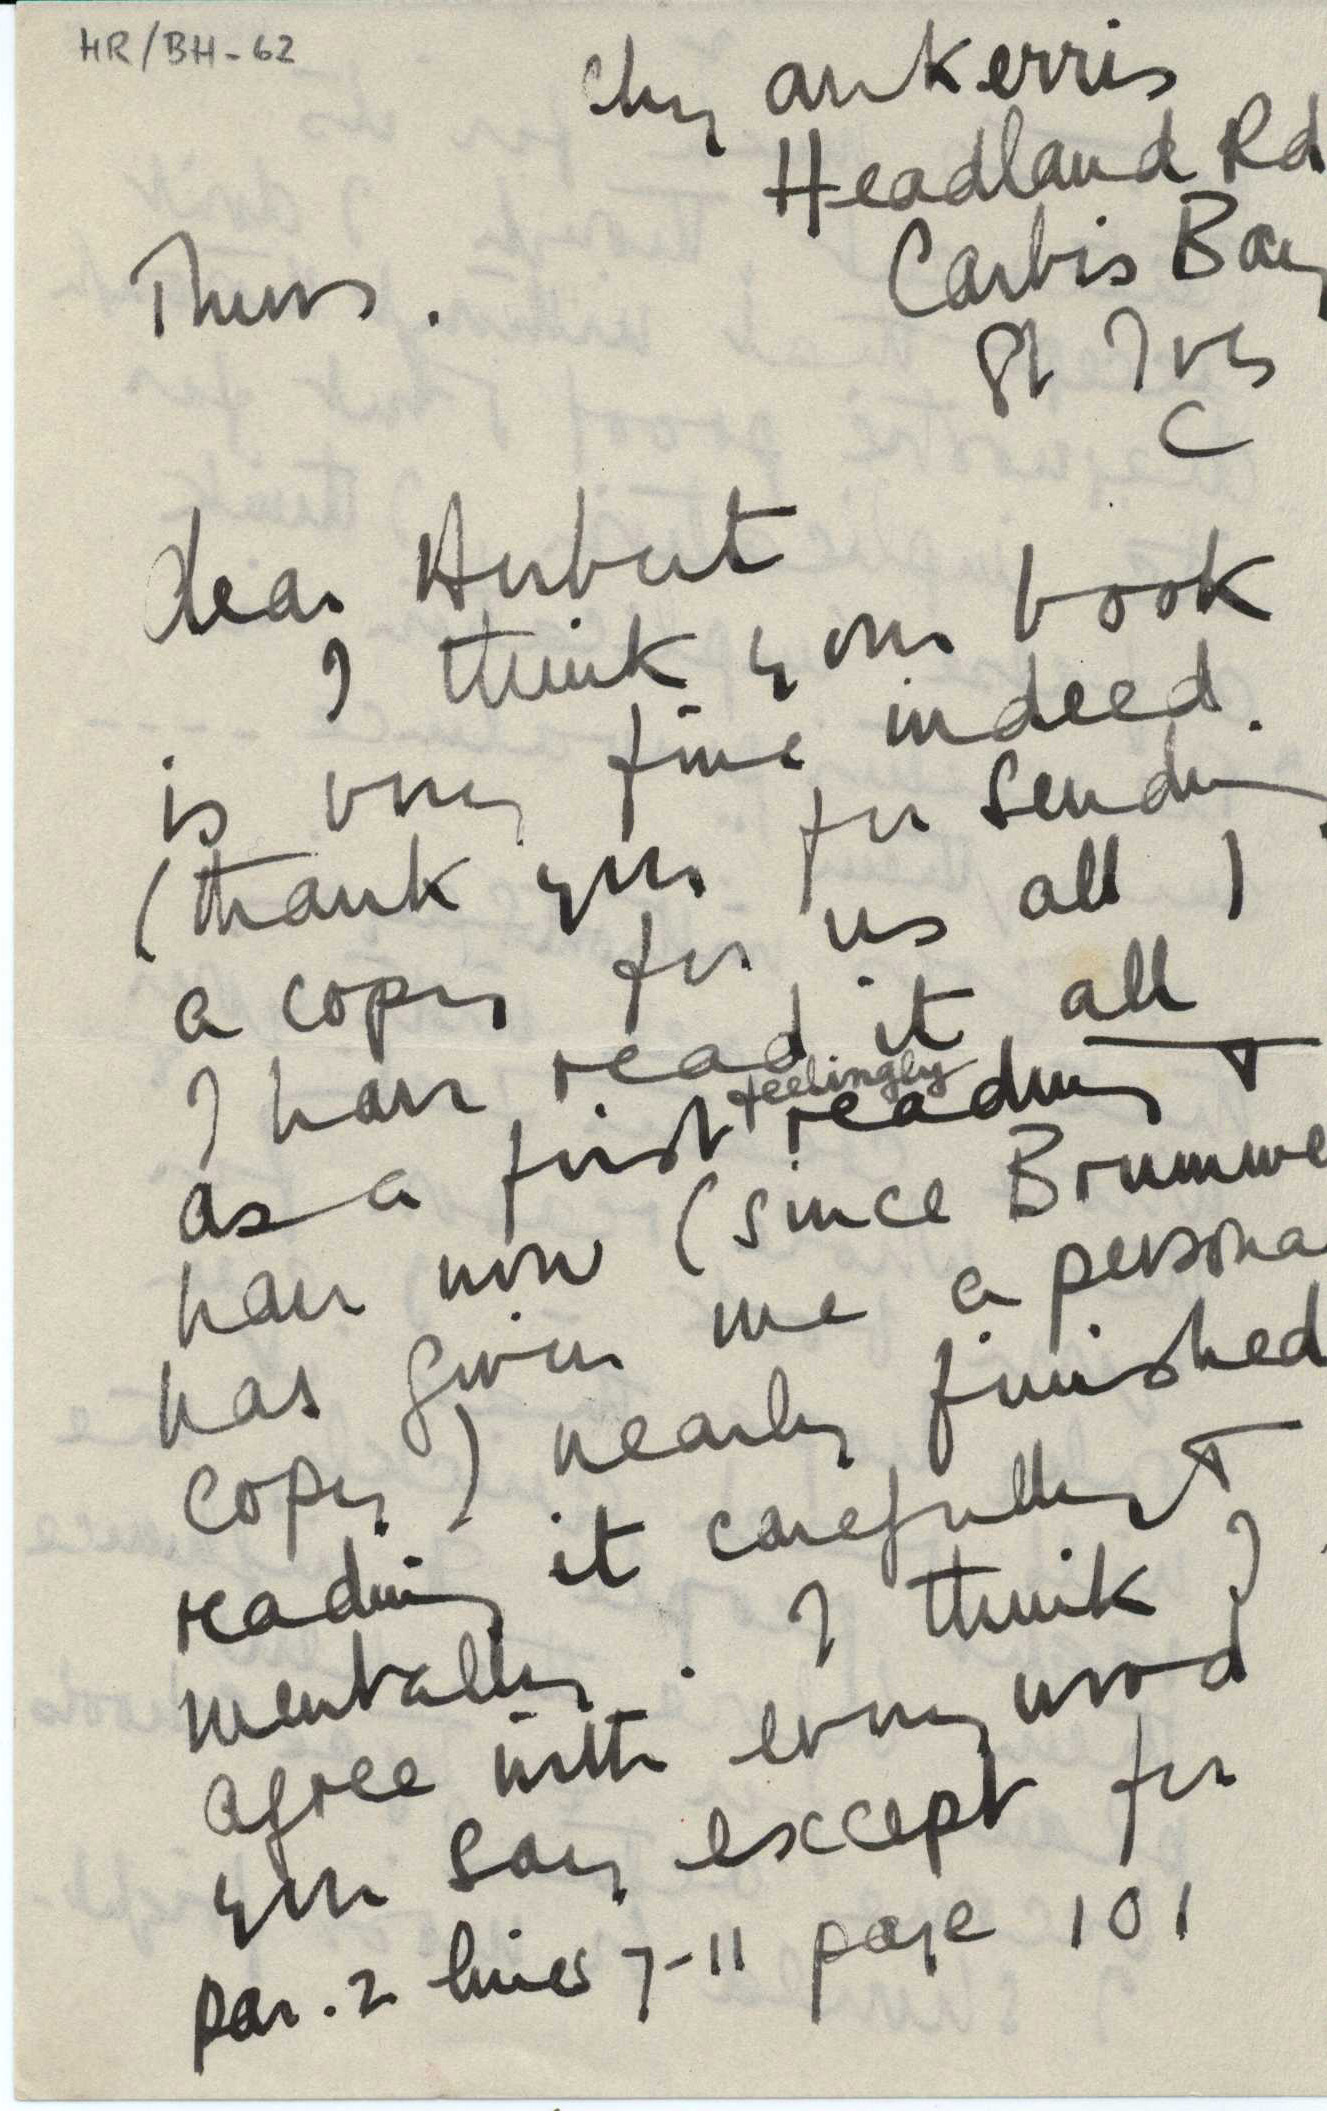 HR/BH-62
Chy an Kerris
Headland Rd
Carbis Bay
St Ives
C
Thurs.
dear Herbert
I think your book
is very fine indeed.
(thank you for sending
a copy for us all)
I have read it all
feelingly
as a first reading &
have now (since Brumwe
has given me a persona
copy) nearly finished
reading it carefully &
mentally. I think I
agree with every word
you say except for
par. 2 lines 7-11 page 101